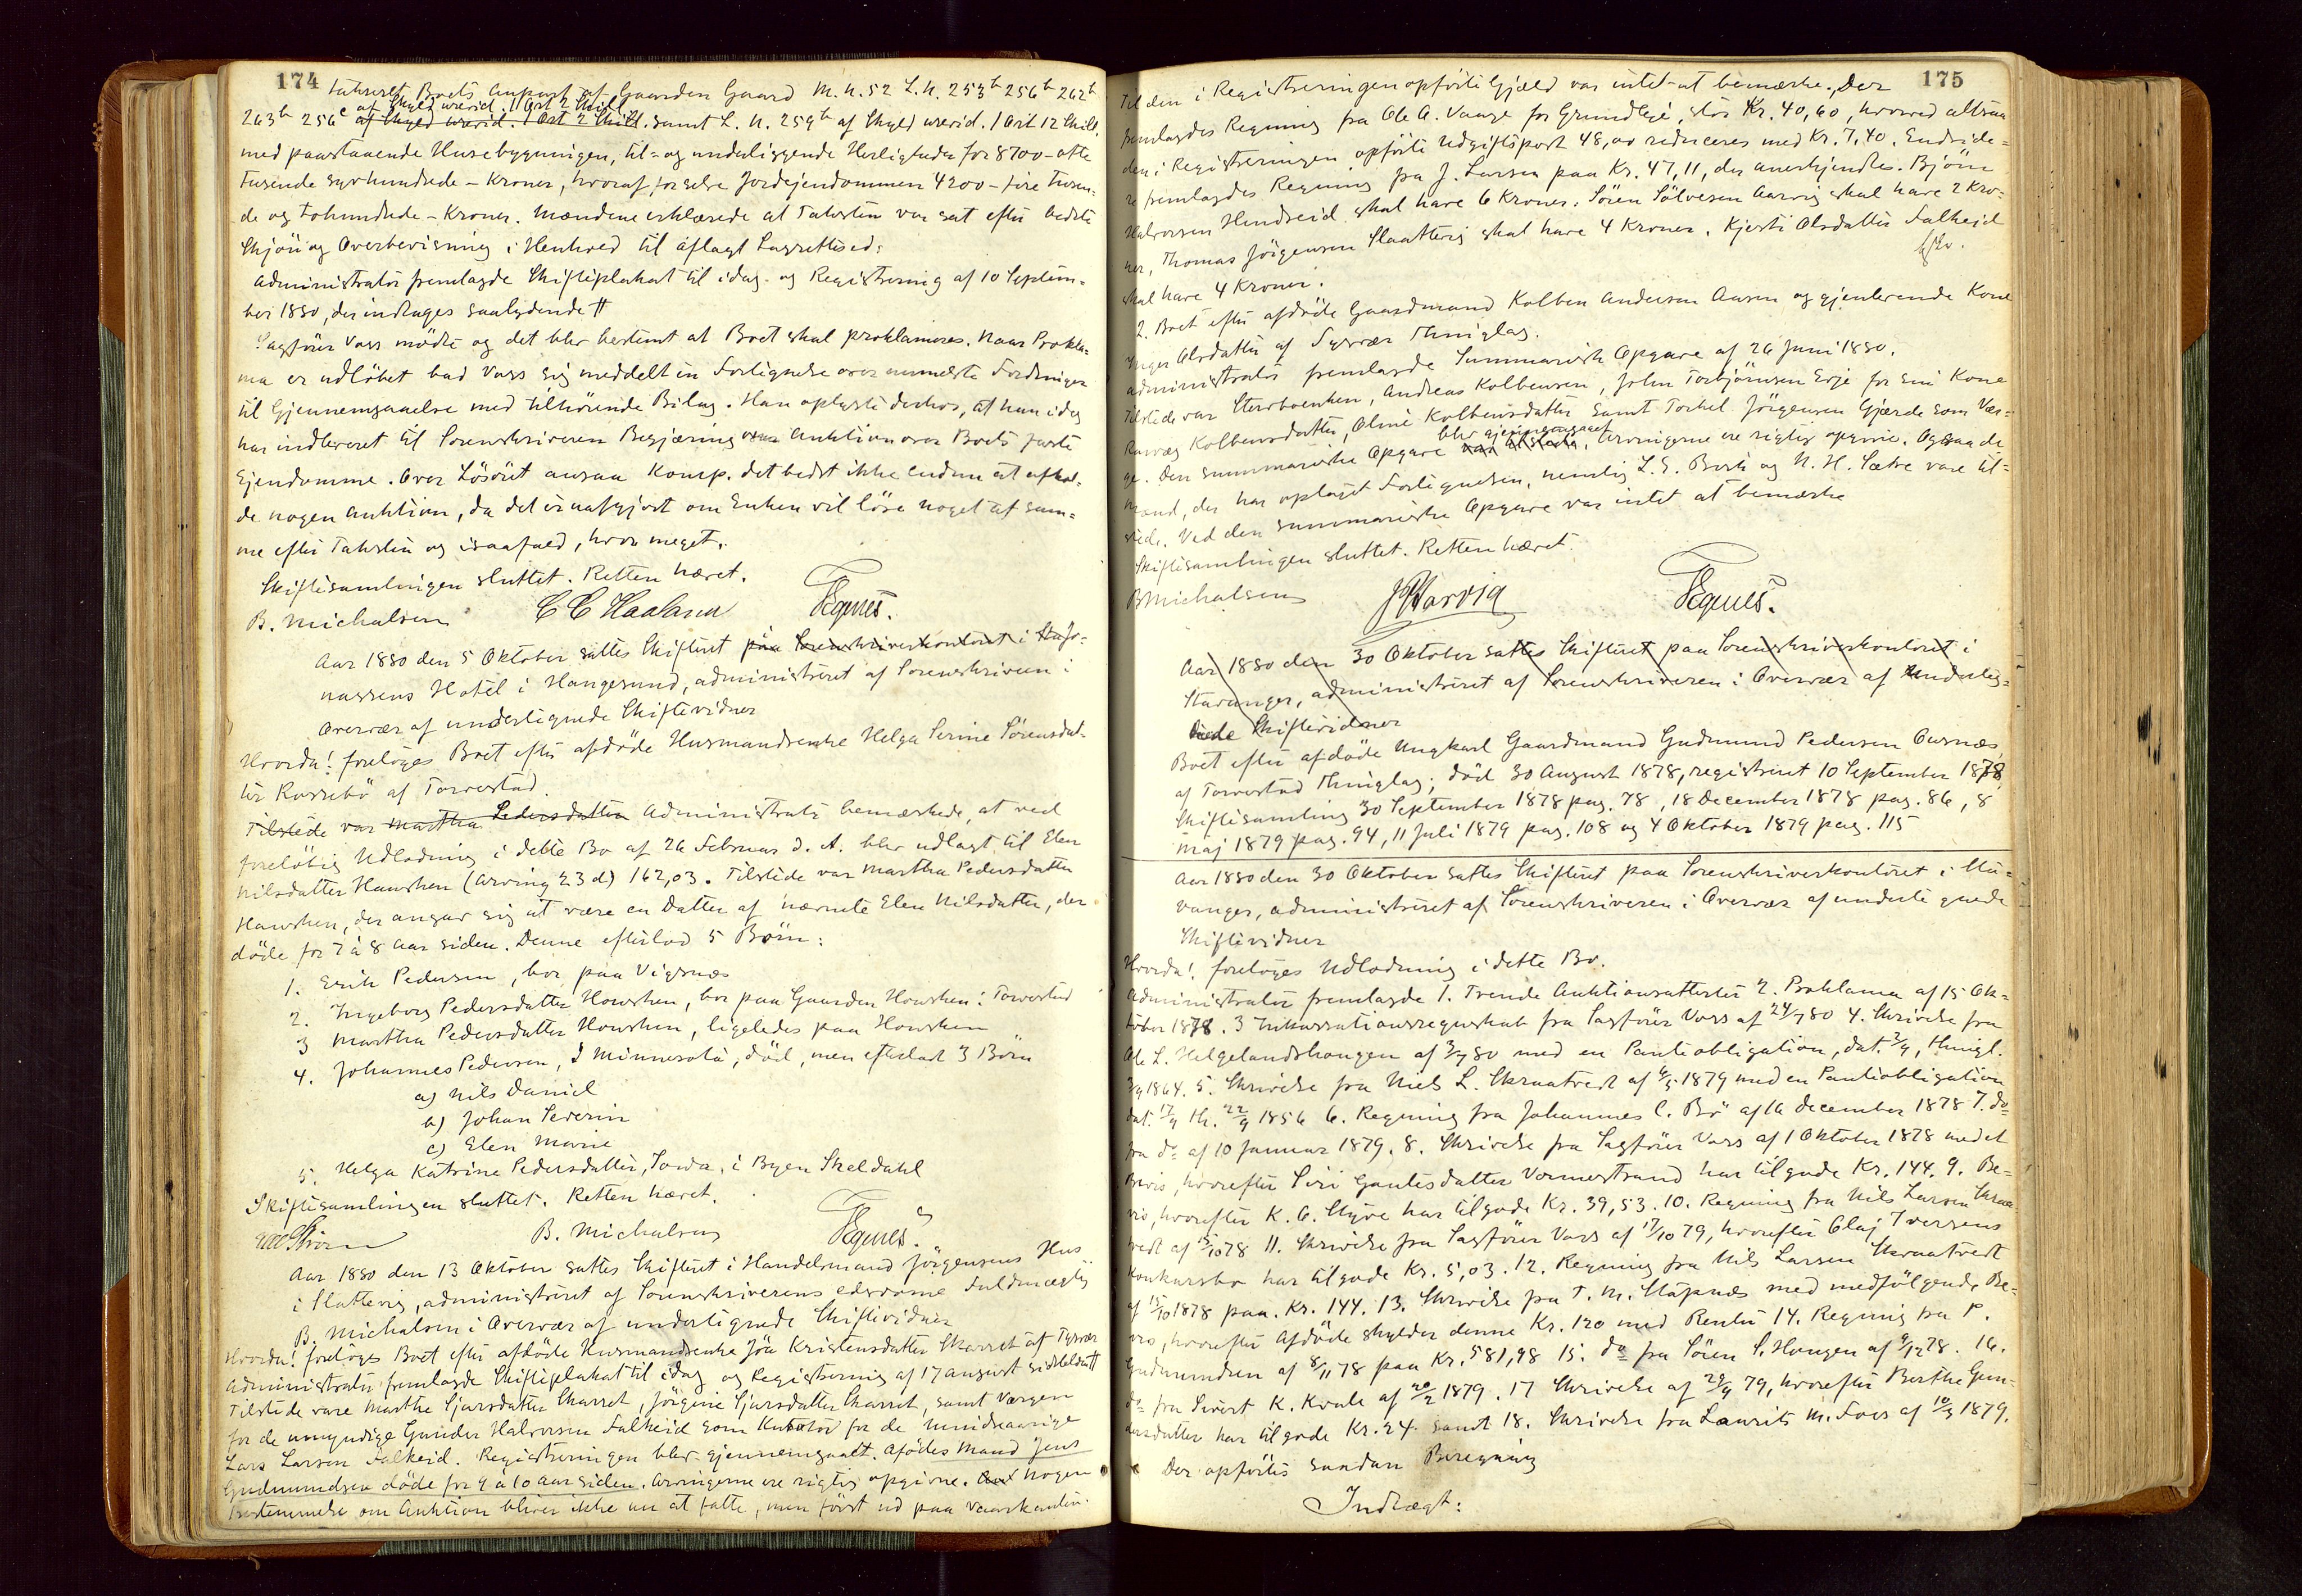 174
taxeret Boets Anpart af Gaarden Gaard M. N. 52 L. N. 253b 256b 262b
263b 256c af Skyld urevid. 1 Ort 2 Skill. samt L. N. 259b af Skyld urevid. 1 Ort 12 Skill.
med paastaaende Husebygninger, til- og underliggende Herligheder for 8700 - otte
tusende syvhundrede - Kroner, hvoraf for selve Jordejendommen 4200 - fire tusen-
de og tohundrede - Kroner. Mændene erklærede at Taksten var sat efter bedste
Skjön og Overbevisning i Henhold til aflagt Lagrettesed:
Administrator fremlagde Skifteplakat til idag og Registrering af 10 Septem-
ber 1880, der indtages saalydende #
Sagförer Vass mödte og det blev bestemt at Boet skal proklameres. Naar Prokla-
ma er udlöbet bad Vass sig meddelt en Forlignelse over anmeldte Fordringer
til Gjennemgaaelse med tilhörende Bilag. Han oplyste derhos, at han idag
har indleveret til Sorenskriveren Begjæring om Auktion over Boets faste
Ejendomme. Over Lösöret ansaa Komp. det bedst ikke endnu at afhol-
de nogen Auktion, da det er uafgjort om Enken vil löse noget af sam-
me efter Taksten og isaafald, hvor meget.
Skiftesamlingen sluttet. Retten hævet.
B. Michalsen C C Haaland
Aar 1880 den 5 Oktober sattes Skifteret paa Sorenskriverkontoret i
nassens Hotel i Haugesund, administreret af Sorenskriveren i
Overvær af undertegnede Skiftevidner
Hvorda! foretoges Boet efter afdöde Husmandsenke Helga Serine Sörensdat-
ter Rossebö af Torvestad.
Tilstede var Martha Pedersdatter Administrator bemærkede, at ved
foreløbig Udlodning i dette Bo af 26 Februar d. A. blev udlagt til Elen
Nilsdatter Hausken (Arving 23 d) 162,03. Tilstede var Martha Pedersdatter
Hausken, der angav sig at være en Datter af nævnte Elen Nilsdatter, der
döde for 7 à 8 Aar siden. Denne efterlod 5 Börn:
1. Erik Pedersen, bor paa Vigsnæs
2. Ingeborg Pedersdatter Howsken, bor paa Gaarden Howsken i Torvestad
3 Martha Pedersdatter Howsken, ligeledes paa Howsken
4. Johannes Pedersen, i Minnesota, död, men efterladt 3 Börn
a) Nils Daniel
b) Johan Severin
c) Elen Marie
5. Helga Katrine Pedersdatter, Iowa, i Byen Skeldahl
Skiftesamlingen sluttet. Retten hævet.
B. Michalsen
Aar 1880 den 13 Oktober sattes Skifteret i Handelsmand Jörgensens Hus
i Slattevig, administreret af Sorenskriverens edsvorne Fuldmægtig
B. Michalsen i Overvær af undertegnede Skiftevidner
Hvorda! foretoges Boet efter afdöde Husmandsenke Jöa Kristensdatter Skarret af Tysvær
Administrator fremlagde Skifteplakat til idag og Registrering af 17 August sidstleden #
Tilstede vare Marthe Sjursdatter Skarret, Jörgine Sjursdatter Skarret, samt Værgen
for de umyndige Gunder Halvorsen Falkeid som Kurator for de mindreaarige
Lars Larsen Falkeid. Registreringen blev gjennemgaaet. Afdödes Mand Jens
Gudmundsen döde for 9 à 10 Aar siden. Arvingerne ere rigtig opgivne. Nogen
Bestemmelse om Auktion bliver ikke nu at fatte, men först ud paa Vaarkanten.
175
Til den i Registreringen opförte Gjæld var intet at bemærke. Der
fremlagdes Regning fra Ole A. Vaage for Grundleje, stor Kr. 40,60, hvorved altsaa
den i Registreringen opförte Udgiftspost 48,00 reduceres med Kr. 7,40. Endvide-
re fremlagdes Regning fra J. Larsen paa Kr. 47,11, der anerkjendtes. Björn
Halvorsen Hundseid skal have 6 Kroner. Sören Sölvesen Aarvig skal have 2 Kro-
ner, Thomas Jörgensen Slaattevig skal have 4 Kroner. Kjersti Olsdatter Falkeid
skal have 4 Kroner.
2. Boet efter afdöde Gaardmand Kolben Andersen Aasen og gjenlevende Kone
Inger Olsdatter af Tysvær Thinglag.
Administrator fremlagde Summarisk Opgave af 26 Juni 1880.
Tilstede var Sterboenken, Andreas Kolbensen, John Torbjörnsen Erje for sin Kone
Kolbensdatter, Oline Kolbensdatter samt Torkel Jörgensen Gjærde som Vær-
ge. Den summariske Opgave blev gjennemgaaet. Arvingerne ere rigtig opgivne. Ogsaa de
Mænd, der har optaget Forlignelsen, nemlig L. E. Borte og N. H. Sætre vare til-
stede. Ved den summariske Opgave var intet at bemærke
Skiftesamlingen sluttet. Retten hævet.
B Michalsen
Aar 1880 den 30 Oktober sattes Skifteret paa Sorenskriverkontoret i
Stavanger, administreret af Sorenskriveren i Overvær af underteg-
nede Skiftevidner
Boet efter afdöde Ungkarl Gaardmand Gudmund Pedersen Oursnæs
af Torvestad Thinglag; död 30 August 1878, registreret 10 September 1878,
Skiftesamling 30 September 1878 pag. 78, 18 December 1878 pag. 86, 8
Maj 1879 pag. 94, 11 Juli 1879 pag. 108 og 4 Oktober 1879 pag. 115
Aar 1880 den 30 Oktober sattes Skifteret paa Sorenskriverkontoret i Sta-
vanger, administreret af Sorenskriveren i Overvær af undertegnede
Skiftevidner
Hvorda! foretoges Udlodning i dette Bo.
Administrator fremlagde 1. Trende Auktionsattester 2. Proklama af 15 Ok-
tober 1878. 3 Inkassationsregnskab fra Sagförer Vass af 24/7 80 4. Skrivelse fra
Ole L. Helgelandshaugen af 3/7 80 med en Panteobligation, dat. 3/9, thingl.
3/9 1864. 5. Skrivelse fra Niels L. Skraatvedt af 6/5 1879 med en Panteobligation
dat. 17/9 th. 22/9 1856 6. Regning fra Johannes C. Bö af 16 December 1878 7. do
fra do af 10 Januar 1879. 8. Skrivelse fra Sagförer Vass af 1 Oktober 1878 med et
Bevis, hvorefter Siri Gautesdatter Vormestrand har tilgode Kr. 144. 9. Be-
vis, hvorefter K. G. Styve har tilgode Kr. 39,53. 10. Regning fra Nils Larsen Skraa-
tvedt af 15/10 78 11. Skrivelse fra Sagförer Vass af 17/10 79, hvorefter Olaj Iversens
Konkursbo har tilgode Kr. 5,03. 12. Regning fra Nils Larsen Skraatvedt
af 15/10 1878 paa Kr. 144. 13. Skrivelse fra T. M. Stapnæs med medfölgende Be-
vis, hvorefter Afdöde skylder denne Kr. 120 med Renter 14. Regning fra P.
Gudmundsen af 8/11 78 paa Kr. 581,98 15. do fra Sören S. Haugen af 9/12 78. 16.
do fra Sivert K. Kvale af 20/2 1879. 17 Skrivelse af 29/9 79, hvorefter Berthe Gun-
dersdatter har tilgode Kr. 24. samt 18. Skrivelse fra Laurits M. Foss af 10/3 1879.
Der opförtes saadan Beregning
Indtægt: